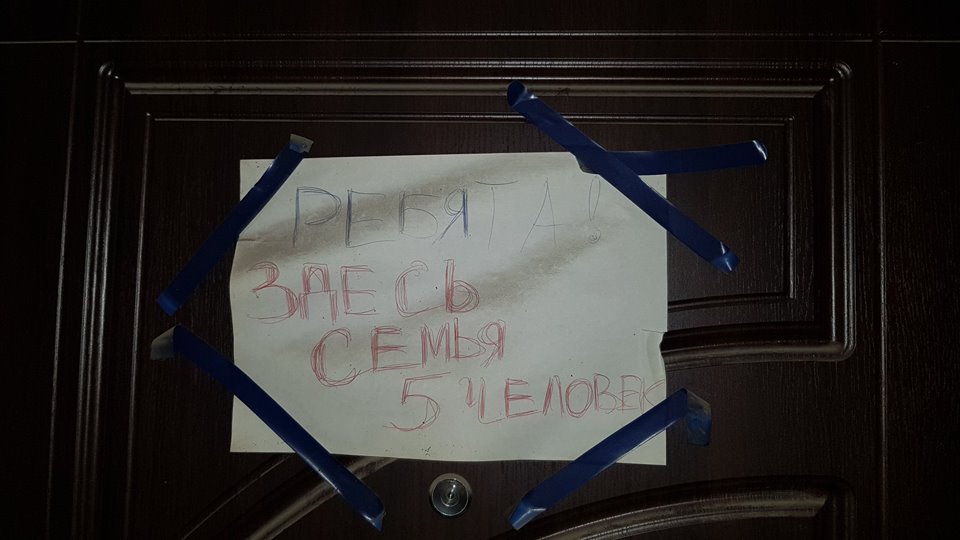 РЕБЯТА!
ЗДЕСЬ
СЕМЬЯ
5 ЧЕЛОВЕК